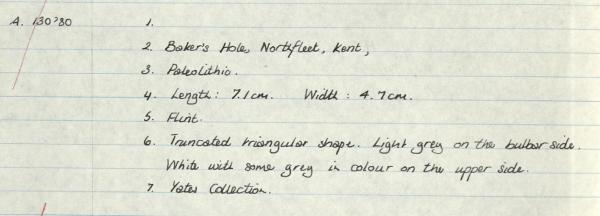 A. 130780 1.
2. Baker's Hole, Northfleet, Kent,
3. Paleolithic.
4. Length: 7.1cm. Width: 4.7cm.
5. Flint.
6. Truncated triangular shape. Light grey on the bulbar side.
White with some grey in colour on the upper side.
7. Yates Collection.